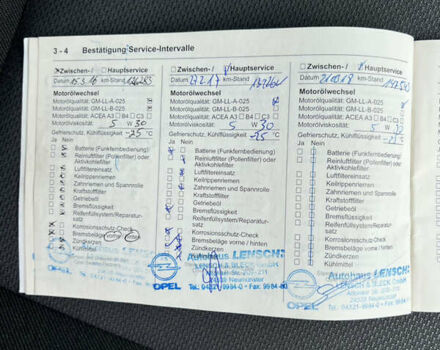 3 - 4 Bestätigung Service-Intervalle
Zwischen- / Hauptservice
Datum 15.3.16 km-Stand
Motorölwechsel
Motorölqualität: GM-LL-A-025
Motorölqualität: GM-LL-B-025
Motorölqualität: ACEA A3 B4 C3
Motorölviskosität: 5 W 30
Gefrierschutz, Kühlflüssigkeit -25 °C
Ja Nein
Batterie (Funkfernbedienung)
Reinluftfilter (Pollenfilter) oder
Aktivkohlefilter
Luftfiltereinsatz
Keilrippenriemen
Zahnriemen und Spannrolle
Kraftstofffilter
Getriebeöl
Bremsflüssigkeit
Reifenfüllsystem/Reparatur-
satz
Korrosionsschutz-Check
Bremsbeläge vorne / hinten
Zündkerzen
Kühlmittel
OPEL
Zwischen- / Hauptservice
Datum km-Stand
Motorölwechsel
Motorölqualität: GM-LL-A-025
Motorölqualität: GM-LL-B-025
Motorölqualität: ACEA A3 B4 C3
Motorölviskosität: 5 W 30
Gefrierschutz, Kühlflüssigkeit -25 °C
Ja Nein
Batterie (Funkfernbedienung)
Reinluftfilter (Pollenfilter) oder
Aktivkohlefilter
Luftfiltereinsatz
Keilrippenriemen
Zahnriemen und Spannrolle
Kraftstofffilter
Getriebeöl
Bremsflüssigkeit
Reifenfüllsystem/Reparatur-
satz
Korrosionsschutz-Check
Bremsbeläge vorne / hinten
Zündkerzen
Autohaus LENSCH
LENSCH & BLECK GmbH
24539 Neumünster
Tel.: 04321-9984-0 • Fax: 9984-80
OPEL
Zwischen- / Hauptservice
Datum km-Stand
Motorölwechsel
Motorölqualität: GM-LL-A-025
Motorölqualität: GM-LL-B-025
Motorölqualität: ACEA A3 B4 C3
Motorölviskosität: 5 W
Gefrierschutz, Kühlflüssigkeit °C
Ja Nein
Batterie (Funkfernbedienung)
Reinluftfilter (Pollenfilter) oder
Aktivkohlefilter
Luftfiltereinsatz
Keilrippenriemen
Zahnriemen und Spannrolle
Kraftstofffilter
Getriebeöl
Bremsflüssigkeit
Reifenfüllsystem/Reparatur-
satz
Korrosionsschutz-Check
Bremsbeläge vorne / hinten
Zündkerzen
Autohaus LENSCH
LENSCH & BLECK GmbH
24539 Neumünster
Tel. 04321-9984-0 • Fax 9984-80